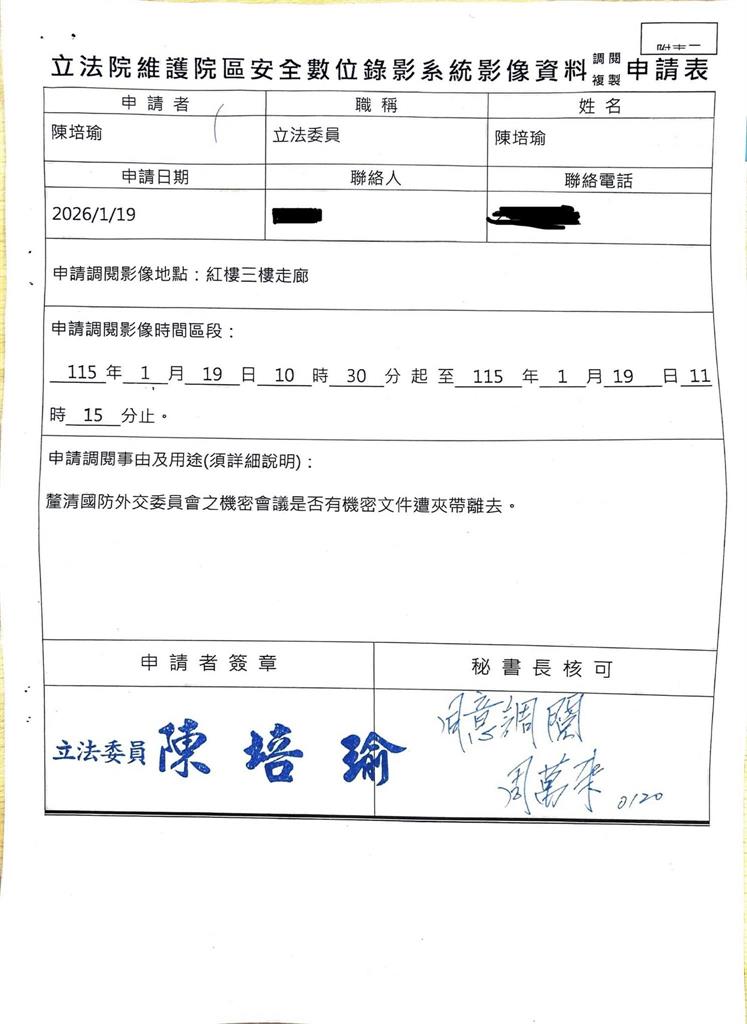 立法院維護院區安全數位錄影系統影像資料調閱複製申請表
申請者 職稱 姓名
陳培瑜 立法委員 陳培瑜
申請日期 聯絡人 聯絡電話
2026/1/19
申請調閱影像地點：紅樓三樓走廊
申請調閱影像時間區段：
115年1月19日10時30分起至115年1月19日11
時15分止。
申請調閱事由及用途(須詳細說明)：
釐清國防外交委員會之機密會議是否有機密文件遭夾帶離去。
申請者簽章 秘書長核可
立法委員 陳培瑜
同意調閱
周萬來 0120